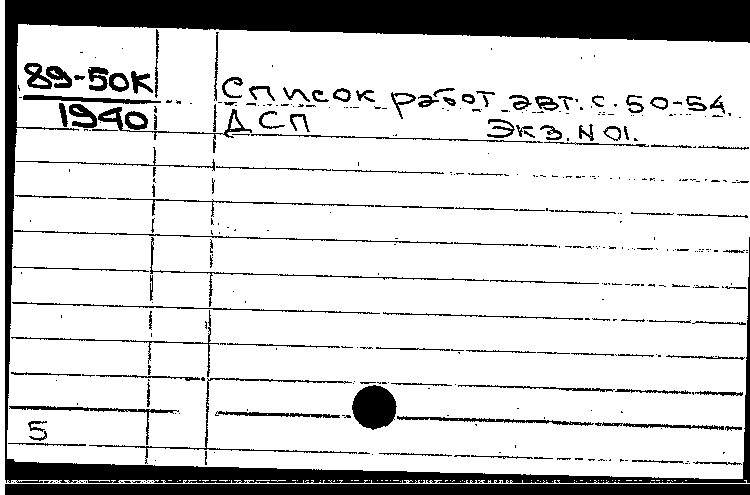 89-50К
1940
Список работ авт. с. 50-54.
ДСП Экз. N 01.
5